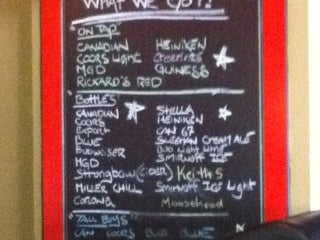 WHAT WE GOT?
"ON TAP"
CANADIAN HEINIKEN
COORS LIGHT CREEMORE
MGD GUINESS
RICKARD'S RED
"BOTTLES"
CANADIAN STELLA
COORS HEINIKEN
EXPORT CAN 67
BLUE SLEEMAN CREAM ALE
BUDWEISER BUD LIGHT LIME
MGD SMIRNOFF ICE
STRONGBOW (CIDER) Keith's
MILLER CHILL SMIRNOFF ICE Light
CORONA Moosehead
"TALL BOYS"
CAN COORS BUD BLUE